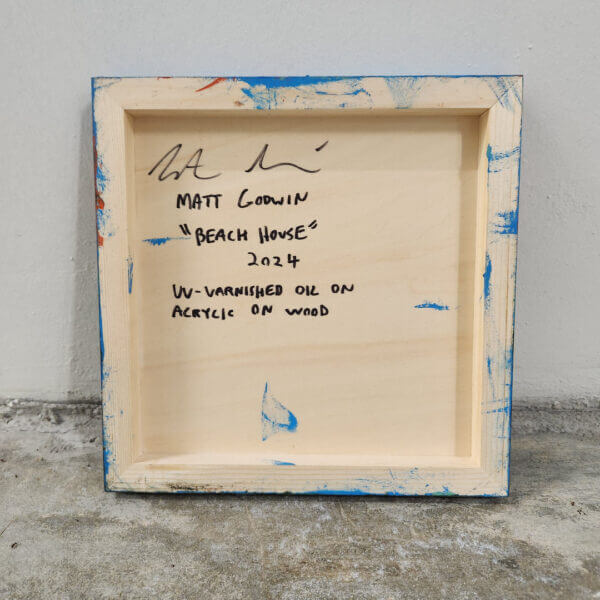 MATT GODWIN
"BEACH HOUSE"
2024
UV-VARNISHED OIL ON
ACRYLIC ON WOOD